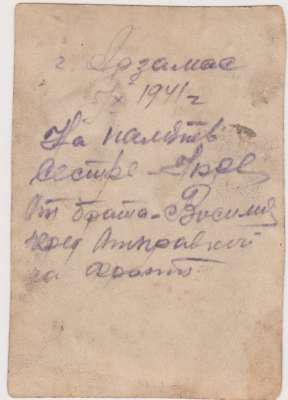 г Арзамас
5/X 1941 г
На память
сестре
От брата - Василия
пред отправкой
на фронт